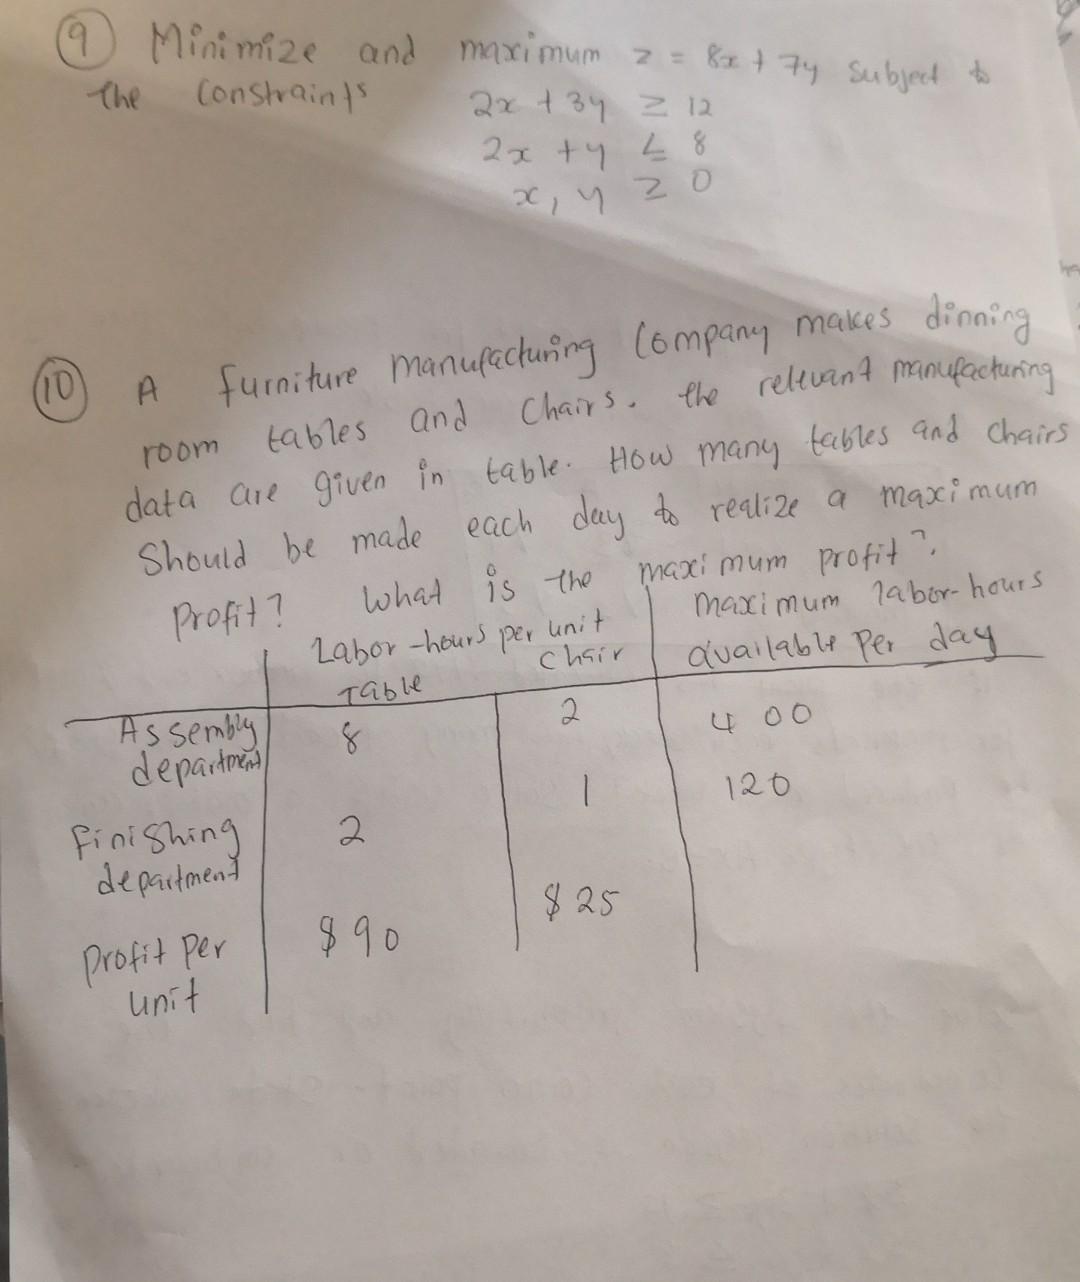 9 Minimize and maximum z = 8x + 7y Subject to
the Constraints
2x + 3y ≥ 12
2x + y ≤ 8
x, y ≥ 0
10 A furniture manufacturing Company makes dinning
room tables and Chairs. the relevant manufacturing
data are given in table. How many tables and chairs
Should be made each day to realize a maximum
Profit? What is the maximum profit?
Labor-hours per unit maximum labor-hours
Table Chair available Per day
Assembly 8 2 400
department
Finishing 2 1 120
department
Profit Per $90 $25
unit